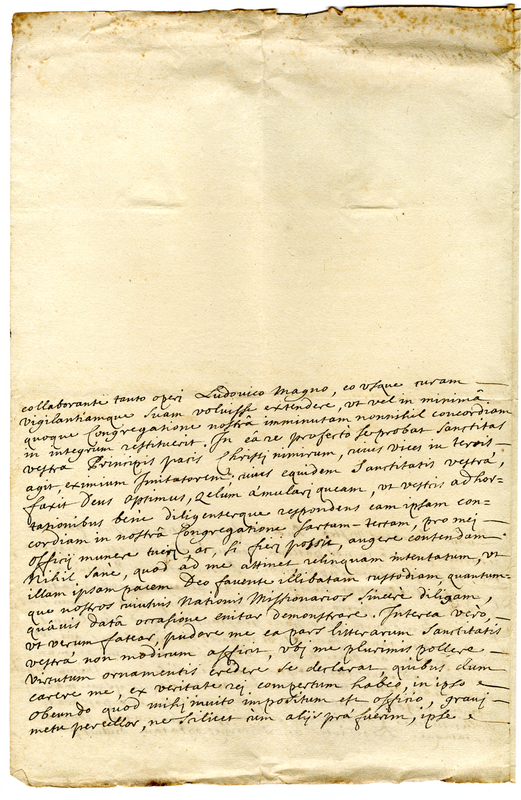 collaborante tanto operi Ludovico Magno, eo usque curam
vigilantiamque suam voluisse extendere, ut vel in minimâ
quoque Congregatione nostrâ imminutam nonnihil concordiam
in integrum restituerit. In ea re profecto se probat Sanctitas
vestra Principis pacis Christi nimirum, cuius vices in terris
agit eximium Imitatorem, cuius equidem Sanctitatis vestrae,
faxit Deus optimus, zelum aemulari queam, ut vestris adhor-
tationibus bene diligenterque respondens eam ipsam con-
cordiam in nostrâ Congregatione sartam-tectam, pro mei
officij munere tueri, ac, si fieri possit, augere contendam
Nihil sanè, quod ad me attinet relinquam intentatum, ut
illam ipsam pacem Deo favente illibatam custodiam, quantum-
que nostros cuiusvis Nationis Missionarios sincere diligam,
quâvis datâ occasione enitar demonstrare. Interea vero,
ut verum fatear, pudore me ea pars litterarum Sanctitatis
vestrae non modicum afficit, ubi me plurimis pollere
virtutum ornamentis credere se declarat, quibus dum
carere me, ex veritate rei compertum habeo, in ipso
obeundo quod mihi invito impositum est officio, gravi
metu percellor, ne scilicet cùm alijs praefuerim, ipse